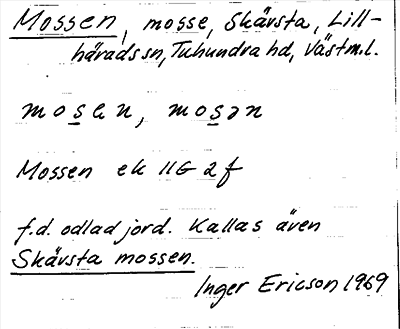 Mossen, mosse, Skävsta, Lill-
härads sn, Tuhundra hd, Västm.l.
mosan, mosən
Mossen ek 11G 2f
f.d. odlad jord. Kallas även
Skävsta mossen.
Inger Ericson 1969